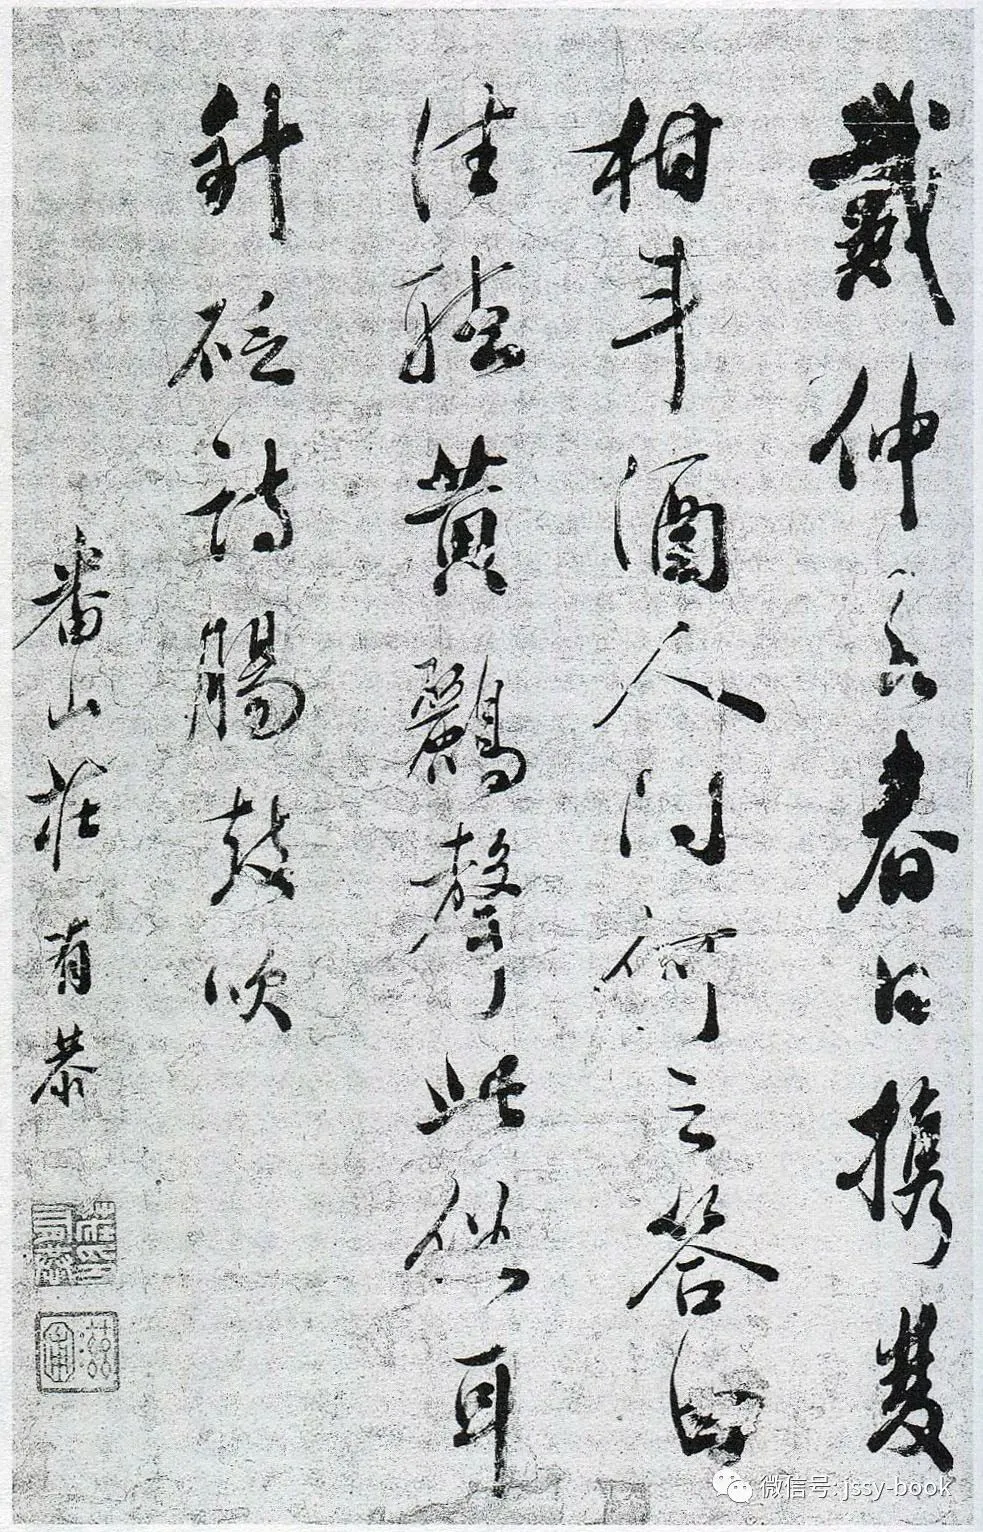 戴仲若春日携雙
柑斗酒人問何之答曰
往聽黃鸝聲此俗耳
針砭詩腸鼓吹
番山莊有恭
莊有恭印
滋圃
微信号: jssy-book